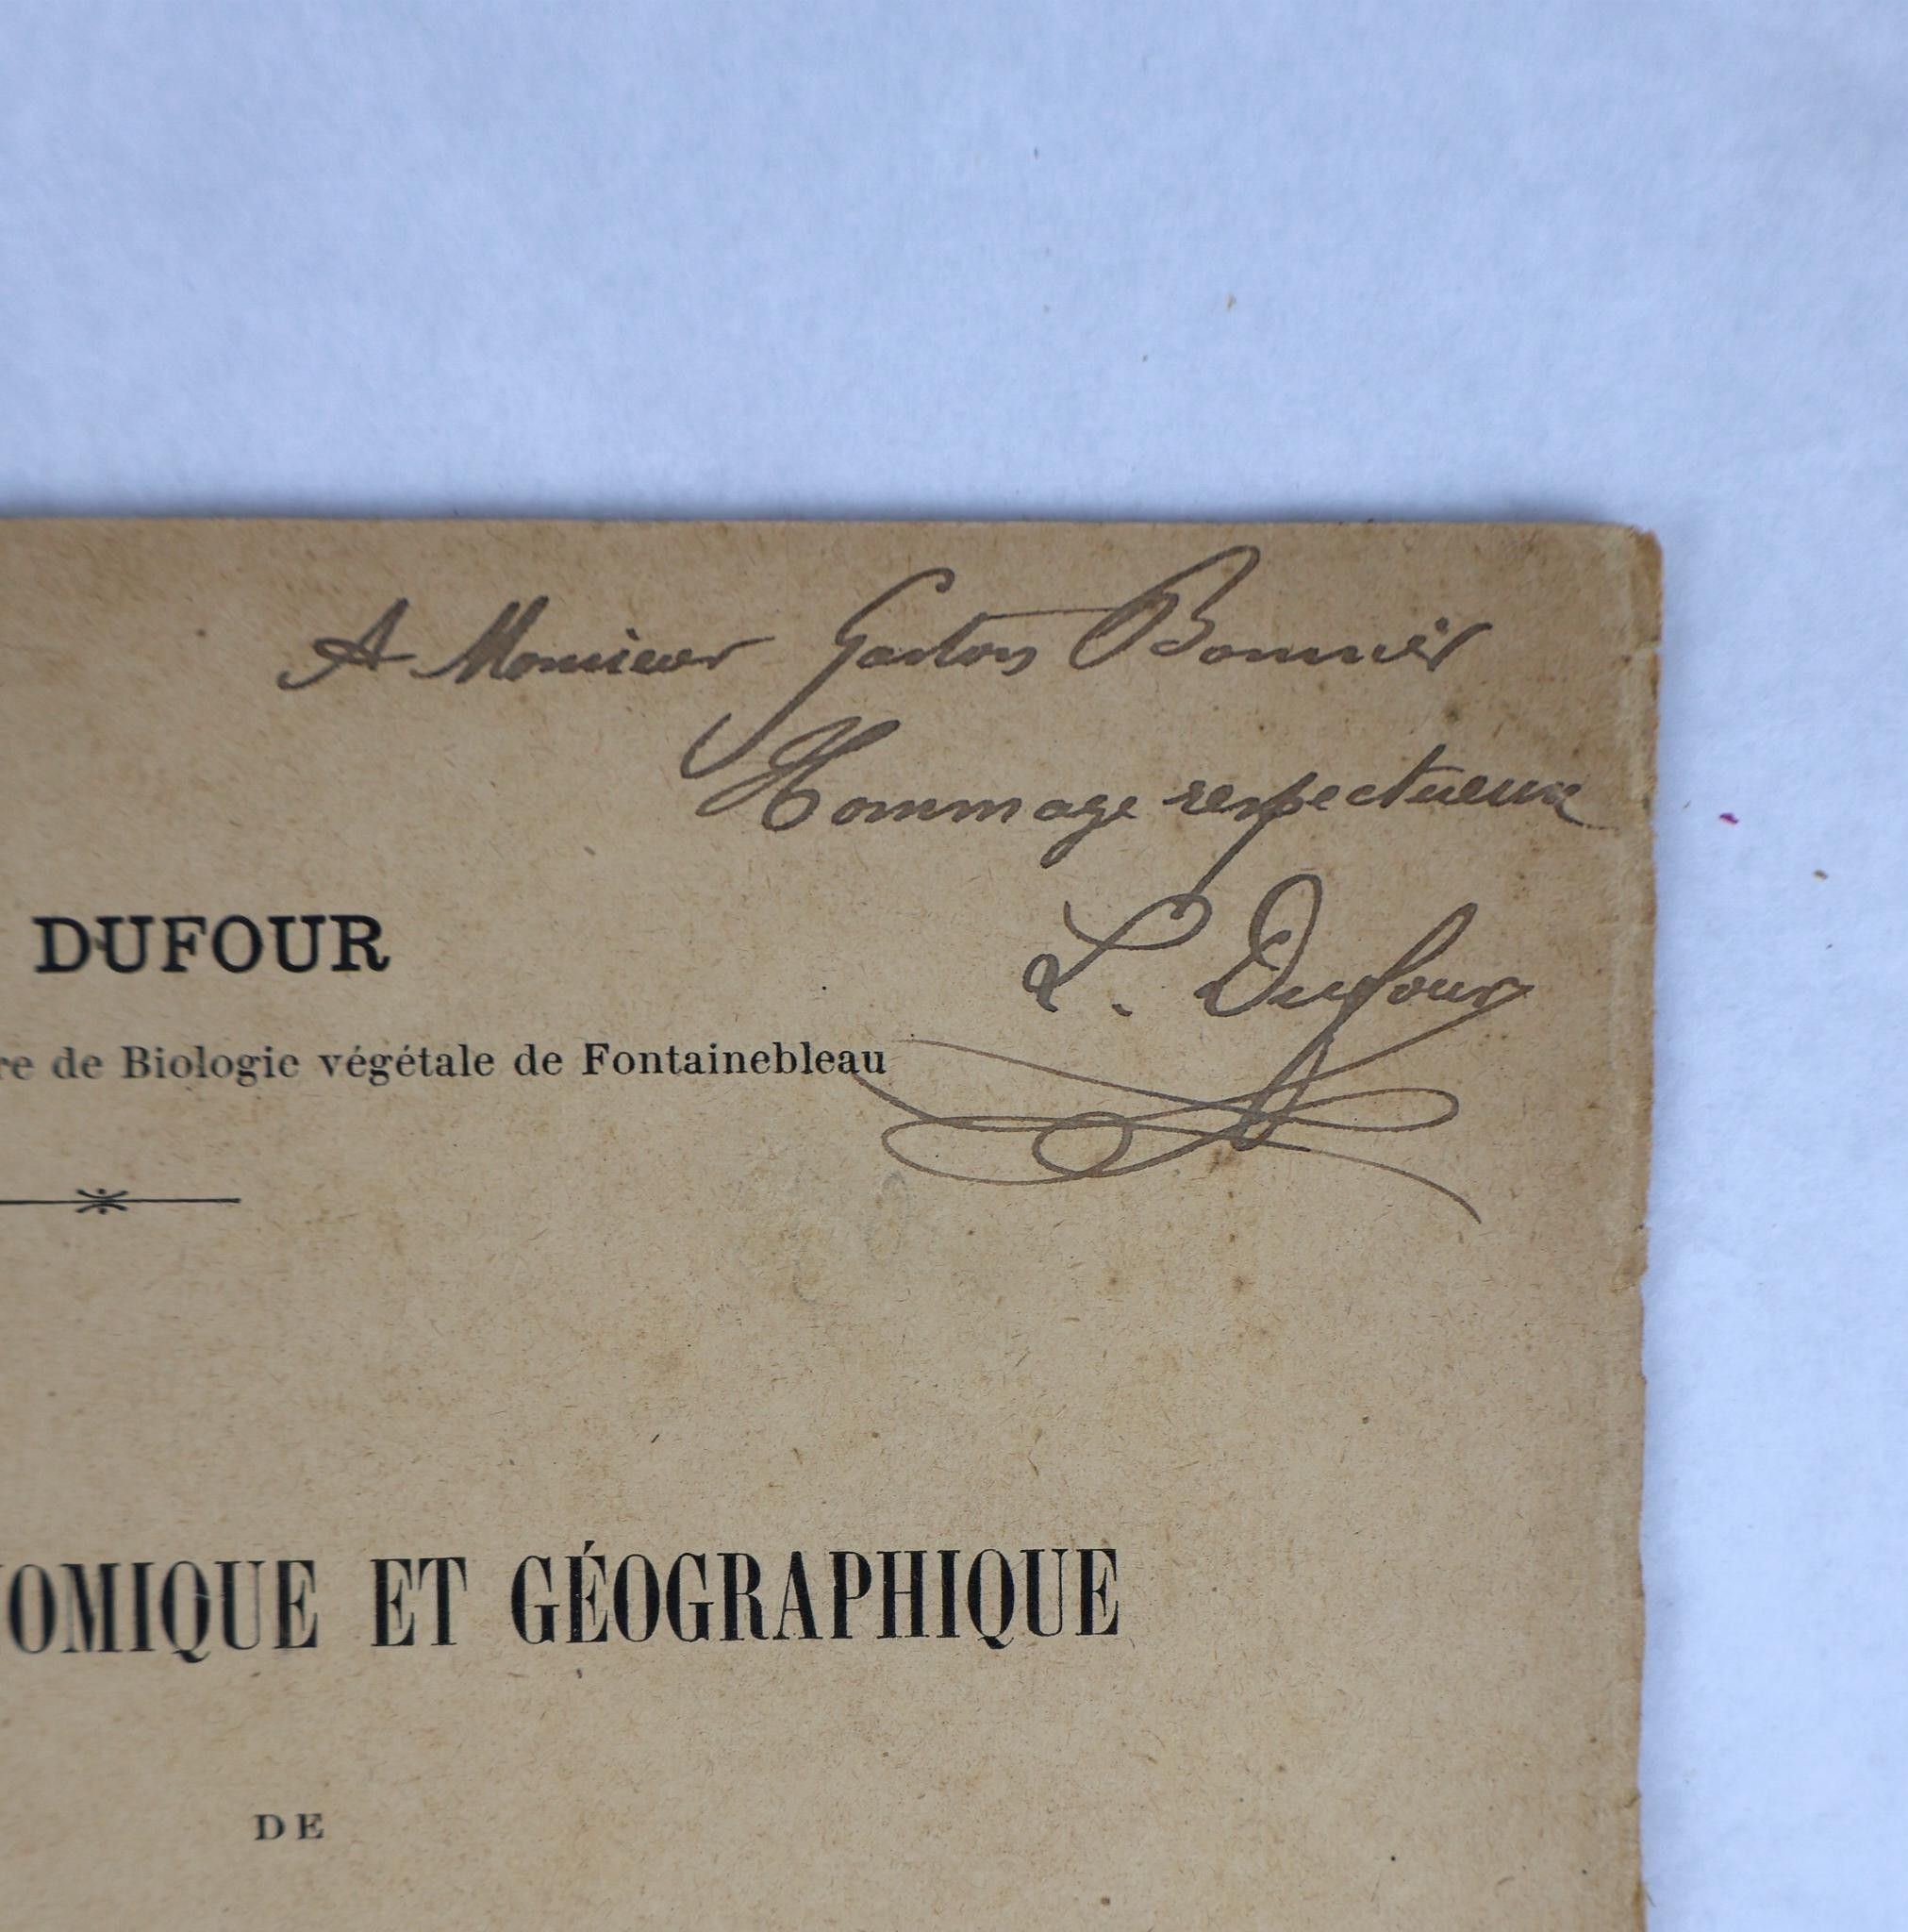 A Monsieur Gaston Bonnier
Hommage respectueux
L. Dufour
DUFOUR
re de Biologie végétale de Fontainebleau
OMIQUE ET GÉOGRAPHIQUE
DE